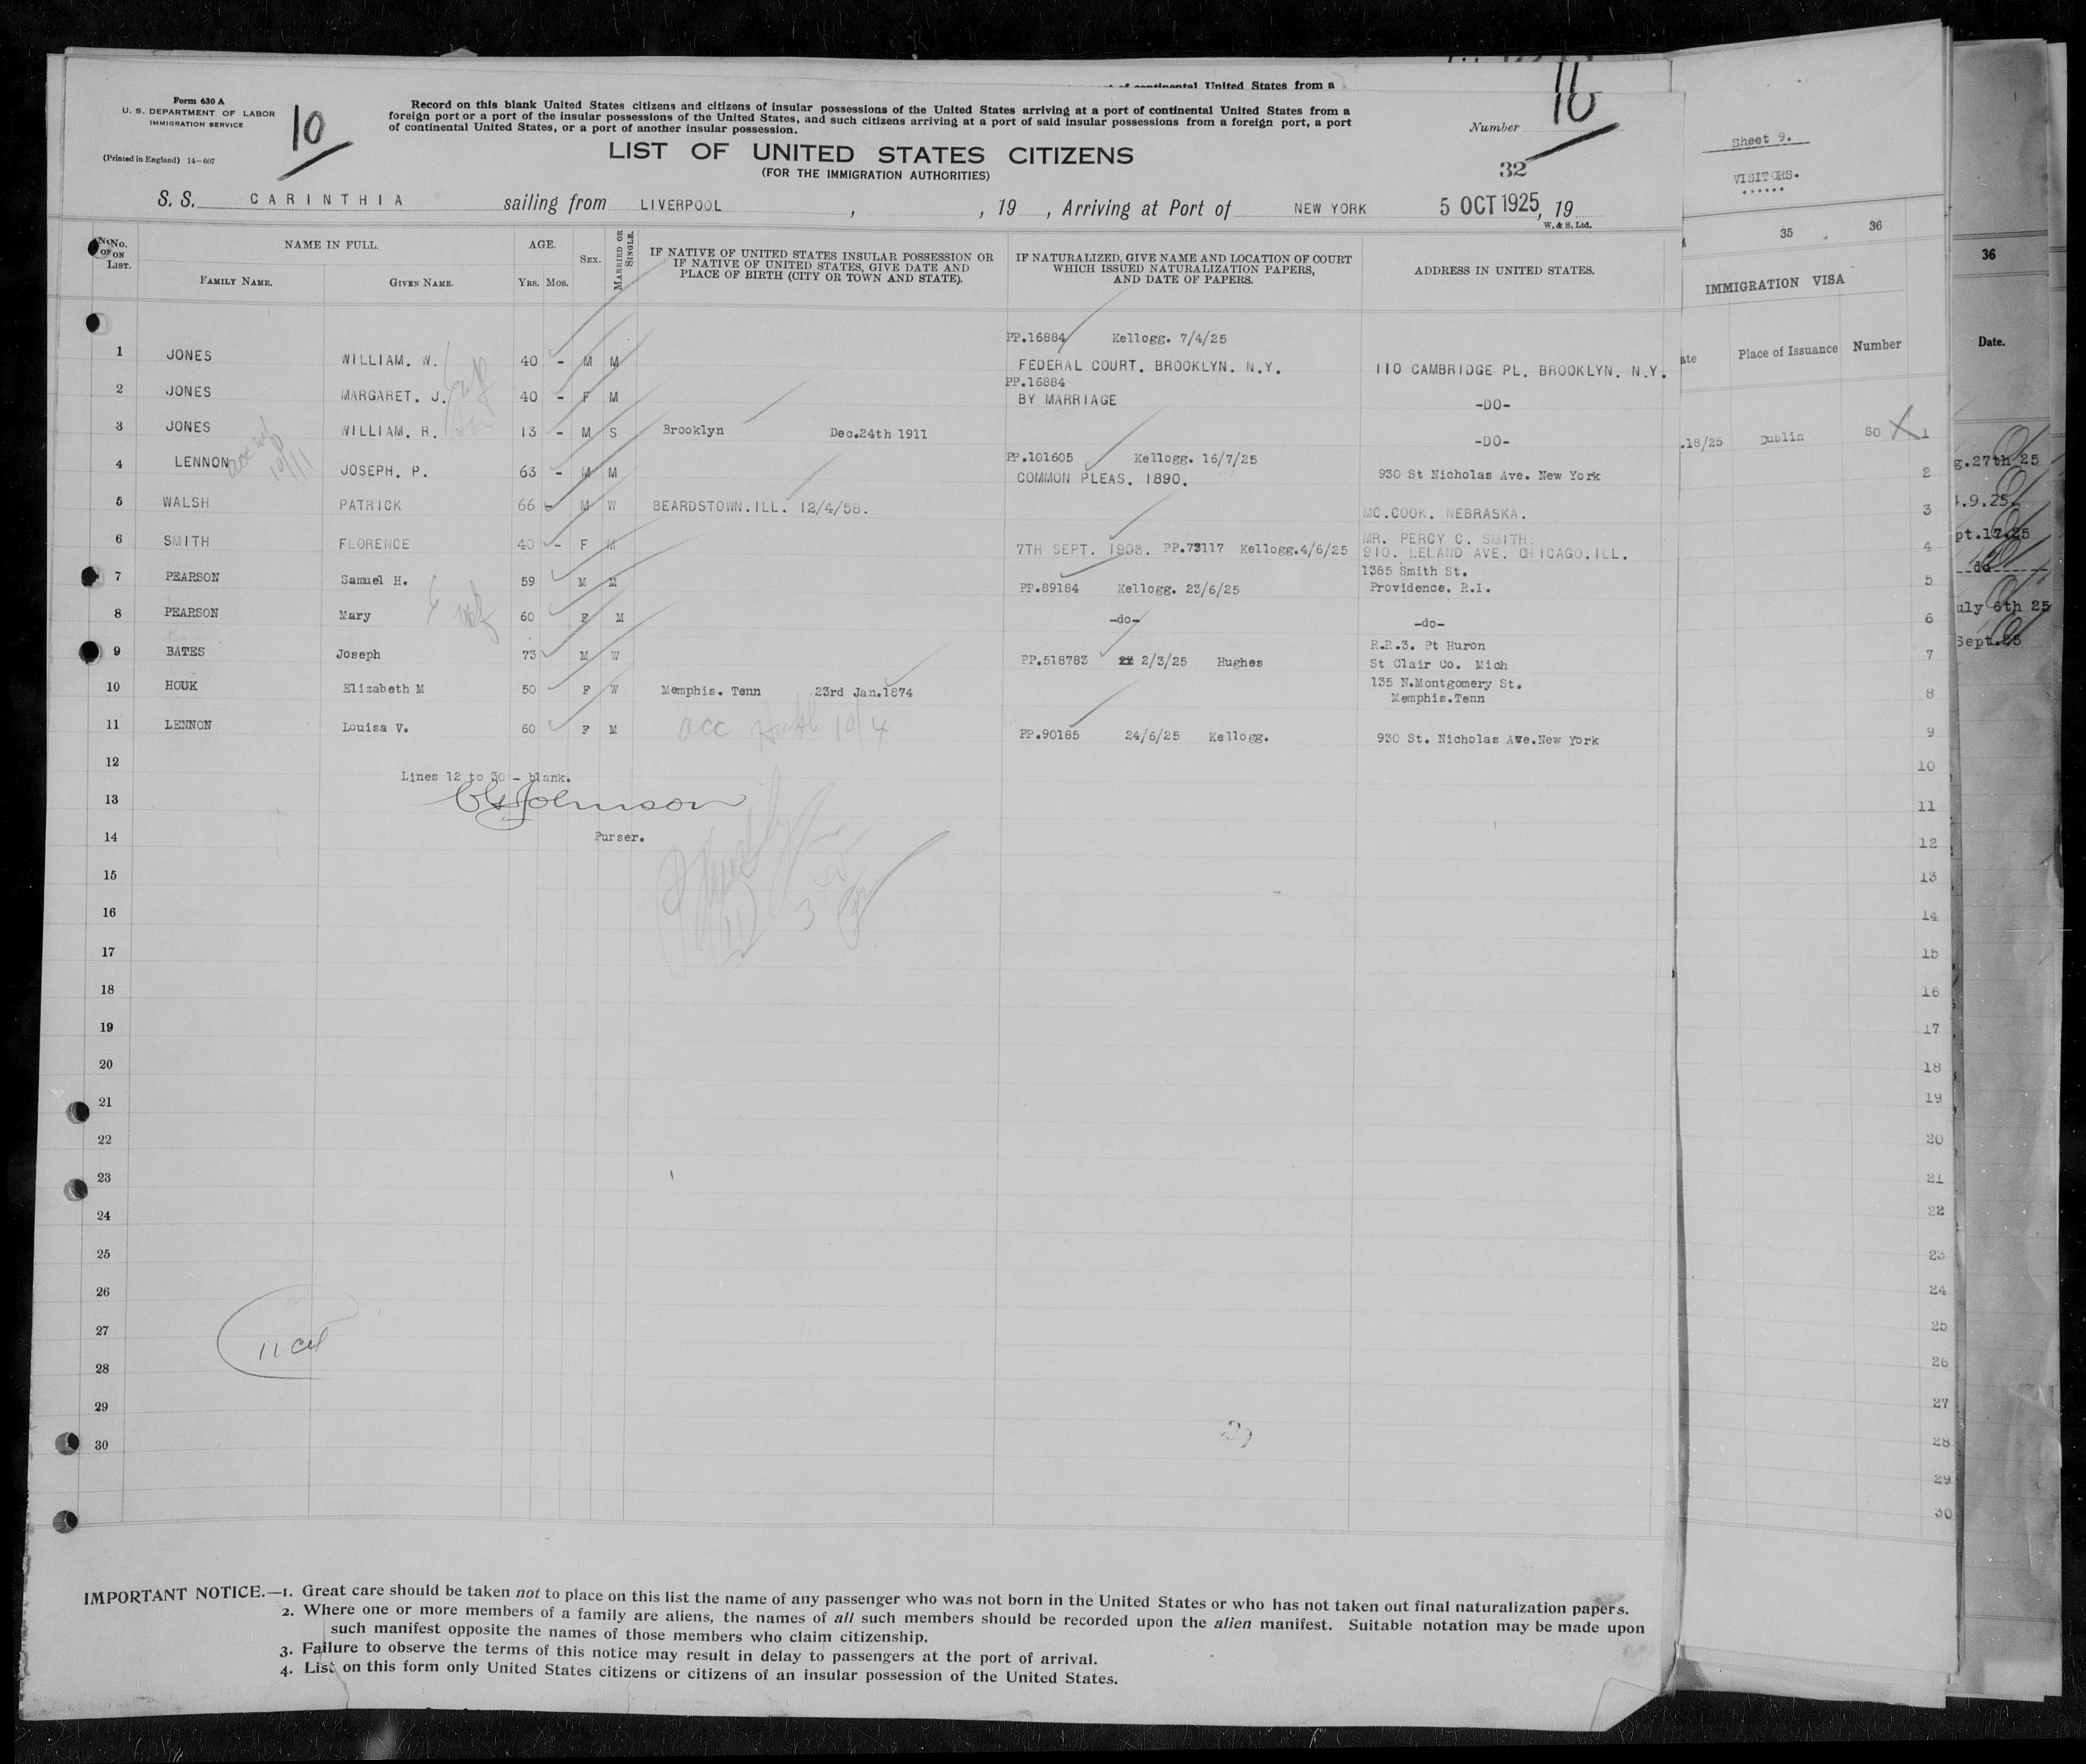 of continental United States from a
Form 630 A
U. S. DEPARTMENT OF LABOR
IMMIGRATION SERVICE
(Printed in England) 14-607
10
Record on this blank United States citizens and citizens of insular possessions of the United States arriving at a port of continental United States from a
foreign port or a port of the insular possessions of the United States, and such citizens arriving at a port of said insular possessions from a foreign port, a port
of continental United States, or a port of another insular possession.
Number 10
11
LIST OF UNITED STATES CITIZENS
(FOR THE IMMIGRATION AUTHORITIES)
32
S. S. CARINTHIA sailing from LIVERPOOL , , 19 , Arriving at Port of NEW YORK 5 OCT 1925, 19
W. & S. Ltd.
No. ON LIST.
NAME IN FULL.
FAMILY NAME.
GIVEN NAME.
AGE.
YRS. MOS.
SEX.
MARRIED OR SINGLE.
IF NATIVE OF UNITED STATES INSULAR POSSESSION OR
IF NATIVE OF UNITED STATES, GIVE DATE AND
PLACE OF BIRTH (CITY OR TOWN AND STATE).
IF NATURALIZED, GIVE NAME AND LOCATION OF COURT
WHICH ISSUED NATURALIZATION PAPERS,
AND DATE OF PAPERS.
ADDRESS IN UNITED STATES.
PP.16884 Kellogg. 7/4/25
1 JONES WILLIAM. W. 40 - M M FEDERAL COURT. BROOKLYN. N.Y. 110 CAMBRIDGE PL. BROOKLYN. N.Y.
PP.16884
2 JONES MARGARET. J. 40 - F M BY MARRIAGE -DO-
3 JONES WILLIAM. R. 13 - M S Brooklyn Dec.24th 1911 -DO-
PP.101605 Kellogg. 16/7/25
4 LENNON JOSEPH. P. 63 - M M COMMON PLEAS. 1890. 930 St Nicholas Ave. New York
acc wf 10/11
5 WALSH PATRICK 66 - M W BEARDSTOWN.ILL. 12/4/58. MC.COOK. NEBRASKA.
MR. PERCY C. SMITH.
6 SMITH FLORENCE 40 - F M 7TH SEPT. 1903. PP.73117 Kellogg.4/6/25 910. LELAND AVE. CHICAGO.ILL.
1385 Smith St.
7 PEARSON Samuel H. 59 M M PP.89184 Kellogg. 23/6/25 Providence. R.I.
8 PEARSON Mary 60 F M -do- -do-
R.R.3. Pt Huron
9 BATES Joseph 73 M W PP.518783 2/3/25 Hughes St Clair Co. Mich
135 N.Montgomery St.
10 HOUK Elizabeth M 50 F W Memphis. Tenn 23rd Jan.1874 Memphis.Tenn
11 LENNON Louisa V. 60 F M acc Husb 10/4 PP.90185 24/6/25 Kellogg. 930 St. Nicholas Ave.New York
12
Lines 12 to 30 - blank.
13
Johnson
14 Purser.
15
16
17
18
19
20
21
22
23
24
25
26
27
28
29
30
IMPORTANT NOTICE.—1. Great care should be taken not to place on this list the name of any passenger who was not born in the United States or who has not taken out final naturalization papers.
2. Where one or more members of a family are aliens, the names of all such members should be recorded upon the alien manifest. Suitable notation may be made upon
such manifest opposite the names of those members who claim citizenship.
3. Failure to observe the terms of this notice may result in delay to passengers at the port of arrival.
4. List on this form only United States citizens or citizens of an insular possession of the United States.
Sheet 9.
VISITORS.
35 36
IMMIGRATION VISA
ate Place of Issuance Number
.18/25 Dublin 80 X 1
2
3
4
5
6
7
8
9
10
11
12
13
14
15
16
17
18
19
20
21
22
23
24
25
26
27
28
29
30
36
Date.
g.27th 25
.9.25.
pt.17.25
do
uly 6th 25
Sept.25